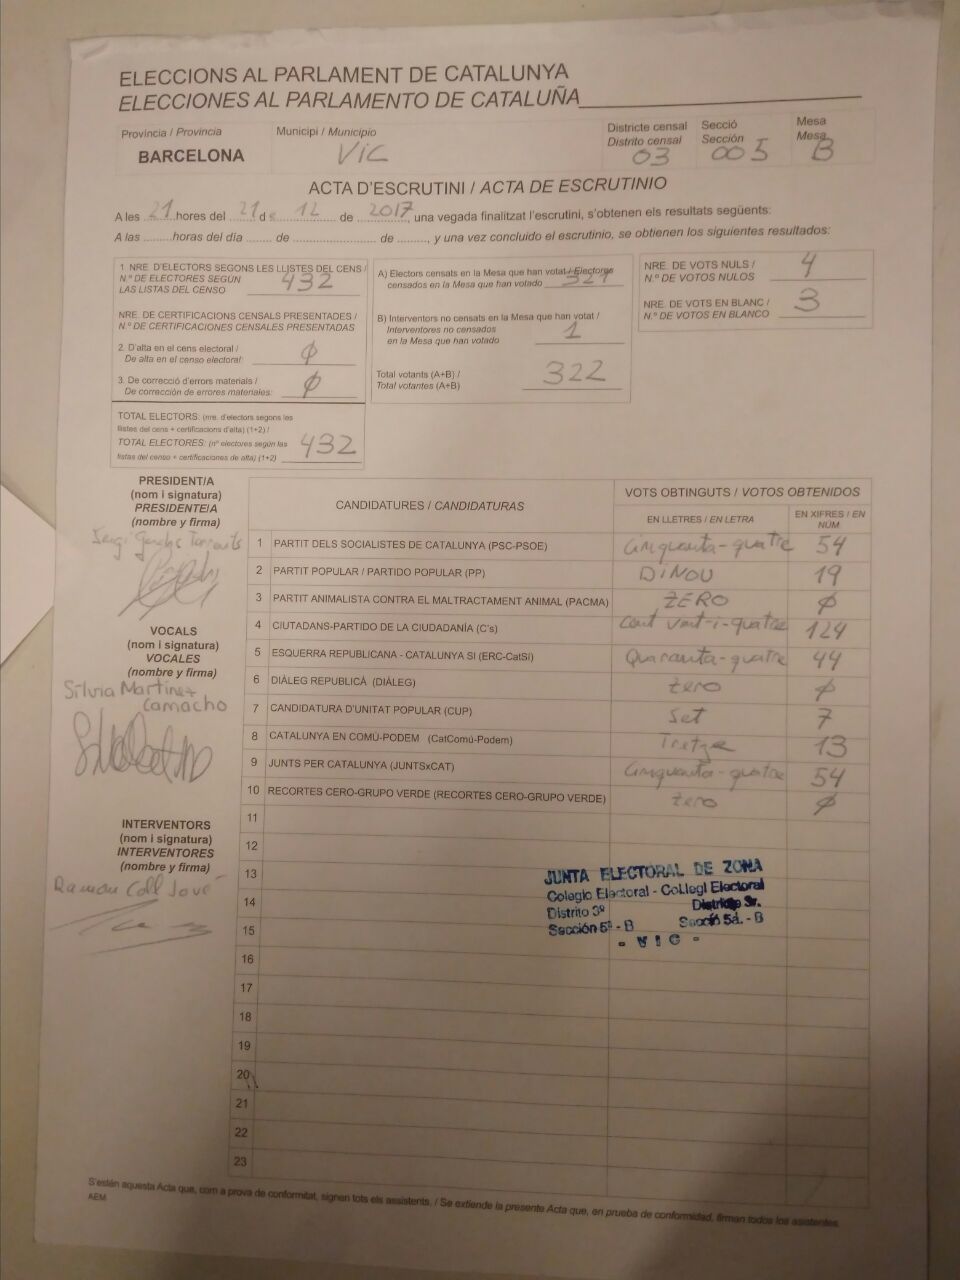 ELECCIONS AL PARLAMENT DE CATALUNYA
ELECCIONES AL PARLAMENTO DE CATALUÑA
Província / Provincia
BARCELONA
Municipi / Municipio
VIC
Districte censal
Distrito censal
03
Secció
Sección
005
Mesa
Mesa
B
ACTA D'ESCRUTINI / ACTA DE ESCRUTINIO
A les 21 hores del 21 de 12 de 2017, una vegada finalitzat l'escrutini, s'obtenen els resultats següents:
A las ........horas del día ....... de ...................... de ........, y una vez concluido el escrutinio, se obtienen los siguientes resultados:
1 NRE. D'ELECTORS SEGONS LES LLISTES DEL CENS /
N.º DE ELECTORES SEGÚN
LAS LISTAS DEL CENSO 432
NRE. DE CERTIFICACIONS CENSALS PRESENTADES /
N.º DE CERTIFICACIONES CENSALES PRESENTADAS
2. D'alta en el cens electoral /
De alta en el censo electoral: ∅
3. De correcció d'errors materials /
De corrección de errores materiales: ∅
TOTAL ELECTORS: (nre. d'electors segons les
llistes del cens + certificacions d'alta) (1+2) /
TOTAL ELECTORES: (nº electores según las
listas del censo + certificaciones de alta) (1+2) 432
A) Electors censats en la Mesa que han votat / Electores
censados en la Mesa que han votado 321
B) Interventors no censats en la Mesa que han votat /
Interventores no censados
en la Mesa que han votado 1
Total votants (A+B) /
Total votantes (A+B) 322
NRE. DE VOTS NULS /
N.º DE VOTOS NULOS 4
NRE. DE VOTS EN BLANC /
N.º DE VOTOS EN BLANCO 3
PRESIDENT/A
(nom i signatura)
PRESIDENTE/A
(nombre y firma)
Sergi
VOCALS
(nom i signatura)
VOCALES
(nombre y firma)
Silvia Martinez
Camacho
INTERVENTORS
(nom i signatura)
INTERVENTORES
(nombre y firma)
Ramon Coll Jové
CANDIDATURES / CANDIDATURAS
VOTS OBTINGUTS / VOTOS OBTENIDOS
EN LLETRES / EN LETRA
EN XIFRES / EN NÚM.
1 PARTIT DELS SOCIALISTES DE CATALUNYA (PSC-PSOE) Cinquanta-quatre 54
2 PARTIT POPULAR / PARTIDO POPULAR (PP) DINOU 19
3 PARTIT ANIMALISTA CONTRA EL MALTRACTAMENT ANIMAL (PACMA) ZERO ∅
4 CIUTADANS-PARTIDO DE LA CIUDADANÍA (C's) Cent vint-i-quatre 124
5 ESQUERRA REPUBLICANA - CATALUNYA SÍ (ERC-CatSí) Quaranta-quatre 44
6 DIÀLEG REPUBLICÀ (DIÀLEG) zero ∅
7 CANDIDATURA D'UNITAT POPULAR (CUP) Set 7
8 CATALUNYA EN COMÚ-PODEM (CatComú-Podem) Tretze 13
9 JUNTS PER CATALUNYA (JUNTSxCAT) Cinquanta-quatre 54
10 RECORTES CERO-GRUPO VERDE (RECORTES CERO-GRUPO VERDE) zero ∅
11
12
13
14
15
16
17
18
19
20
21
22
23
JUNTA ELECTORAL DE ZONA
Colegio Electoral - Col.legi Electoral
Distrito 3º Districte 3r.
Sección 5ª - B Secció 5a. - B
- VIC -
S'estén aquesta Acta que, com a prova de conformitat, signen tots els assistents. / Se extiende la presente Acta que, en prueba de conformidad, firman todos los asistentes.
AEM